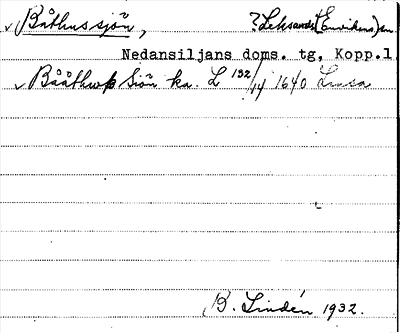 v Båthussjön, ? Leksands (Envikens) sn
Nedansiljans doms. tg, Kopp.l
v Bååthws Siön ka. L 132/14 1640
B. Lindén 1932.